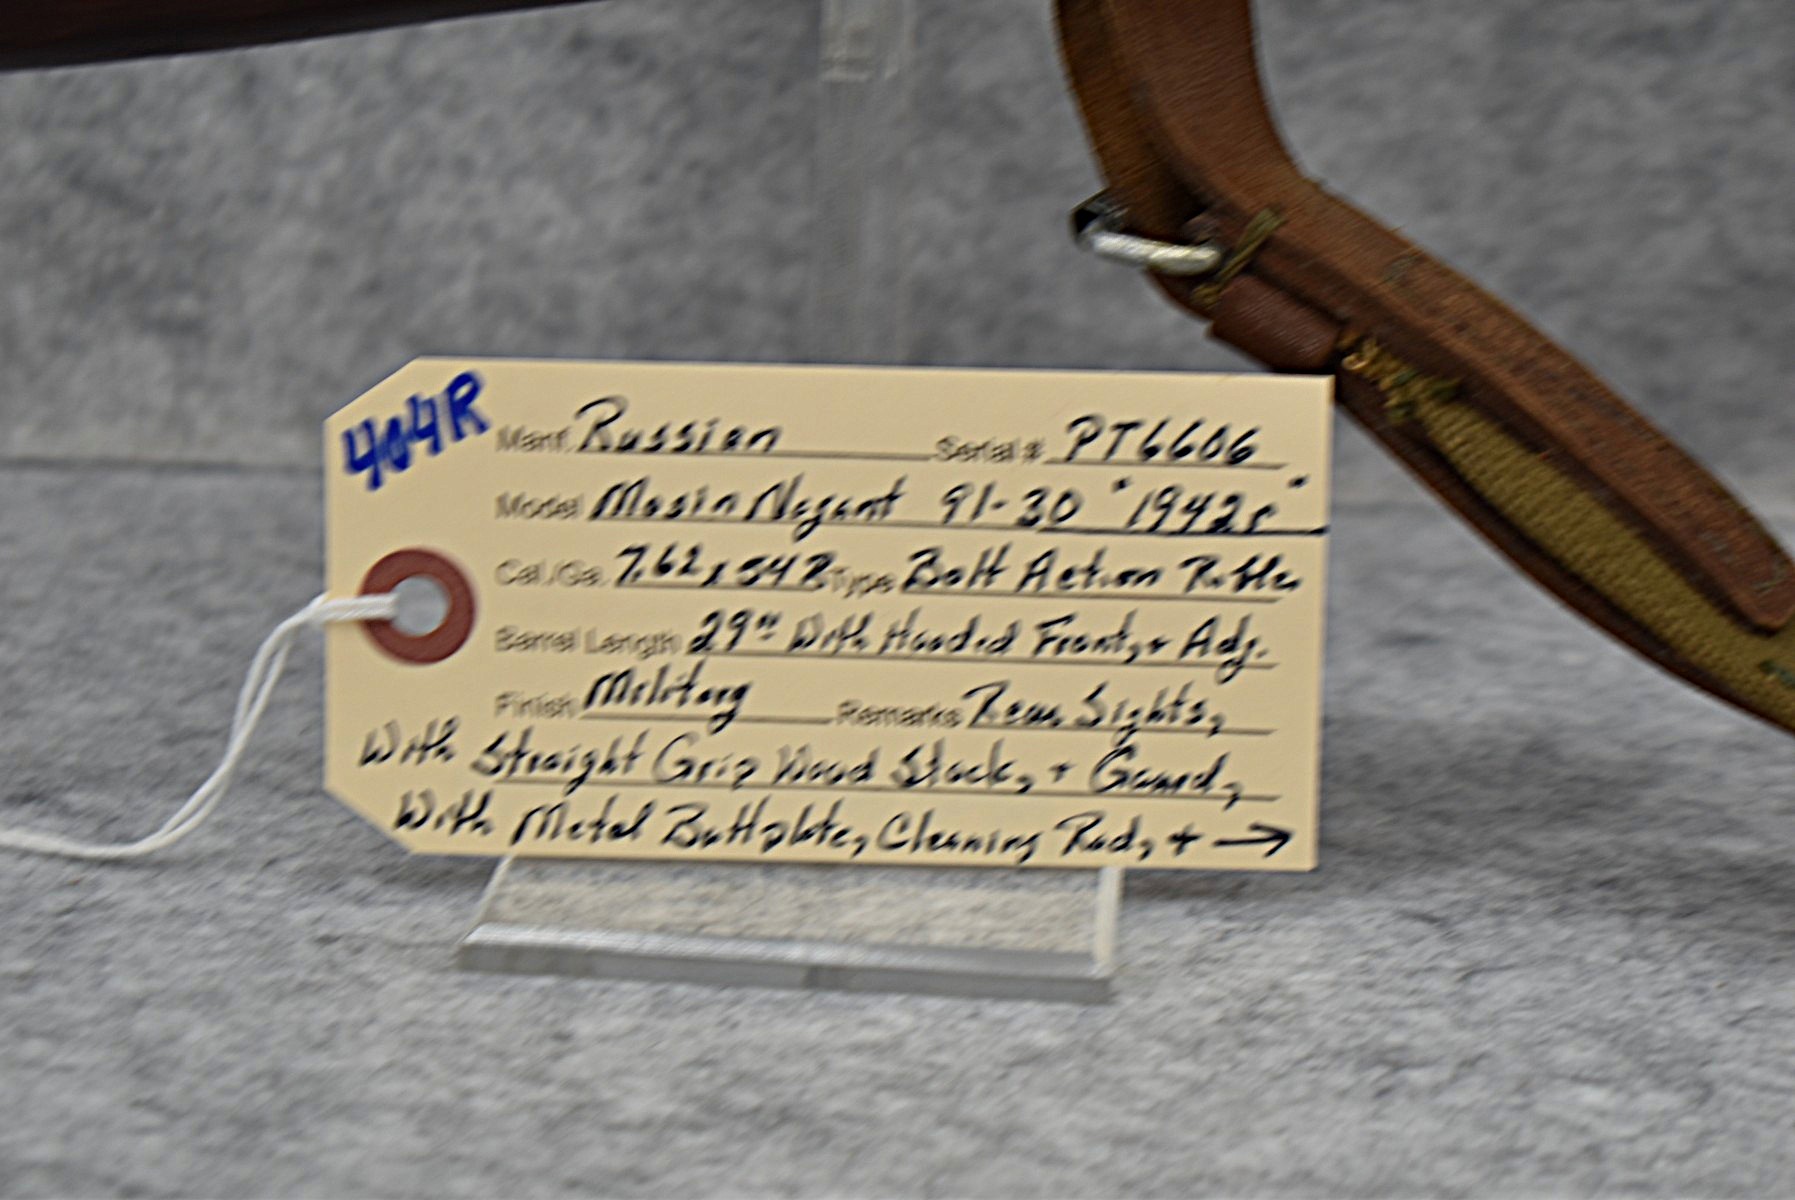 404R
Manf. Russian Serial # PT6606
Model Mosin Nagant 91-30 "1942r"
Cal./Ga. 7.62x54R Type Bolt Action Rifle
Barrel Length 29" With Hooded Front, + Adj.
Finish Military Remarks Rear Sights,
With Straight Grip Wood Stock, + Guard,
With Metal Buttplate, Cleaning Rod, + →